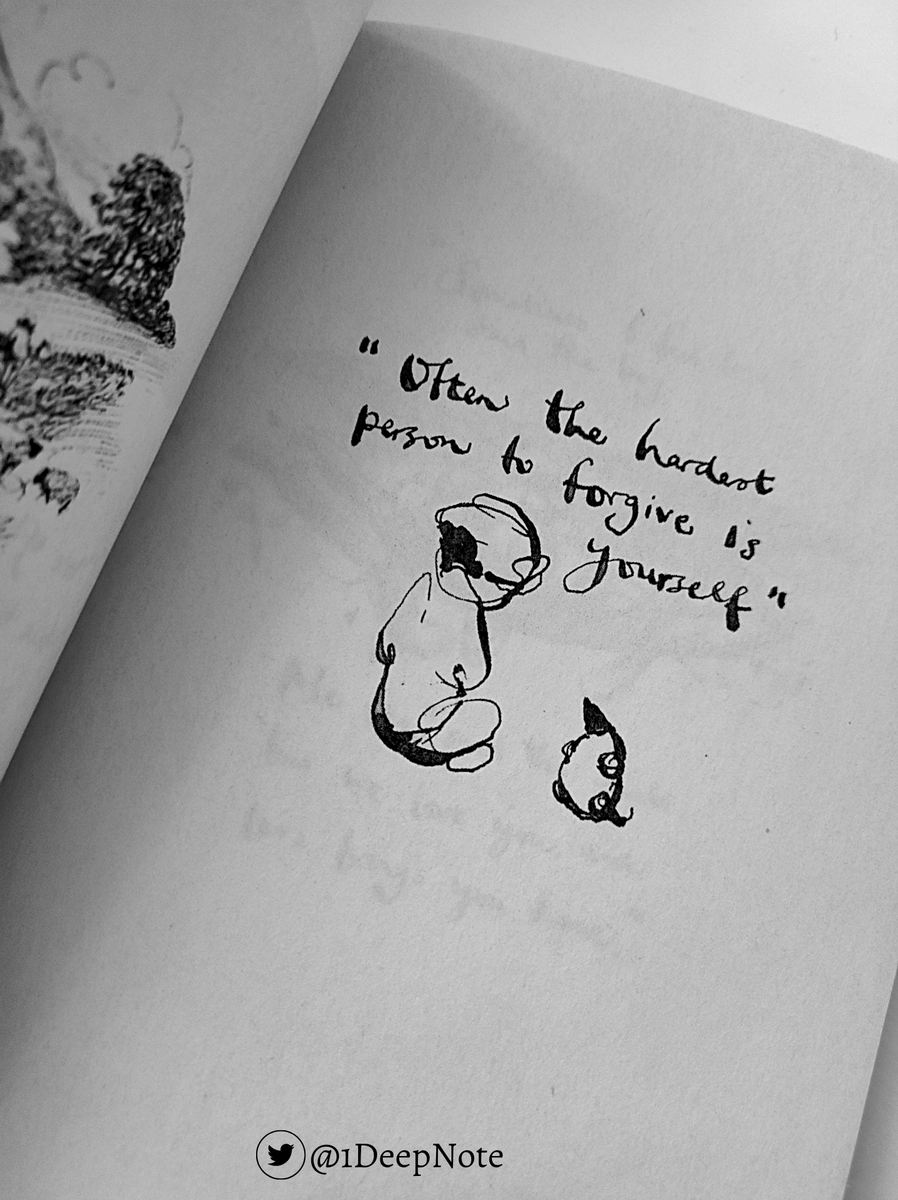 "Often the hardest
person to forgive is
yourself"
@1DeepNote